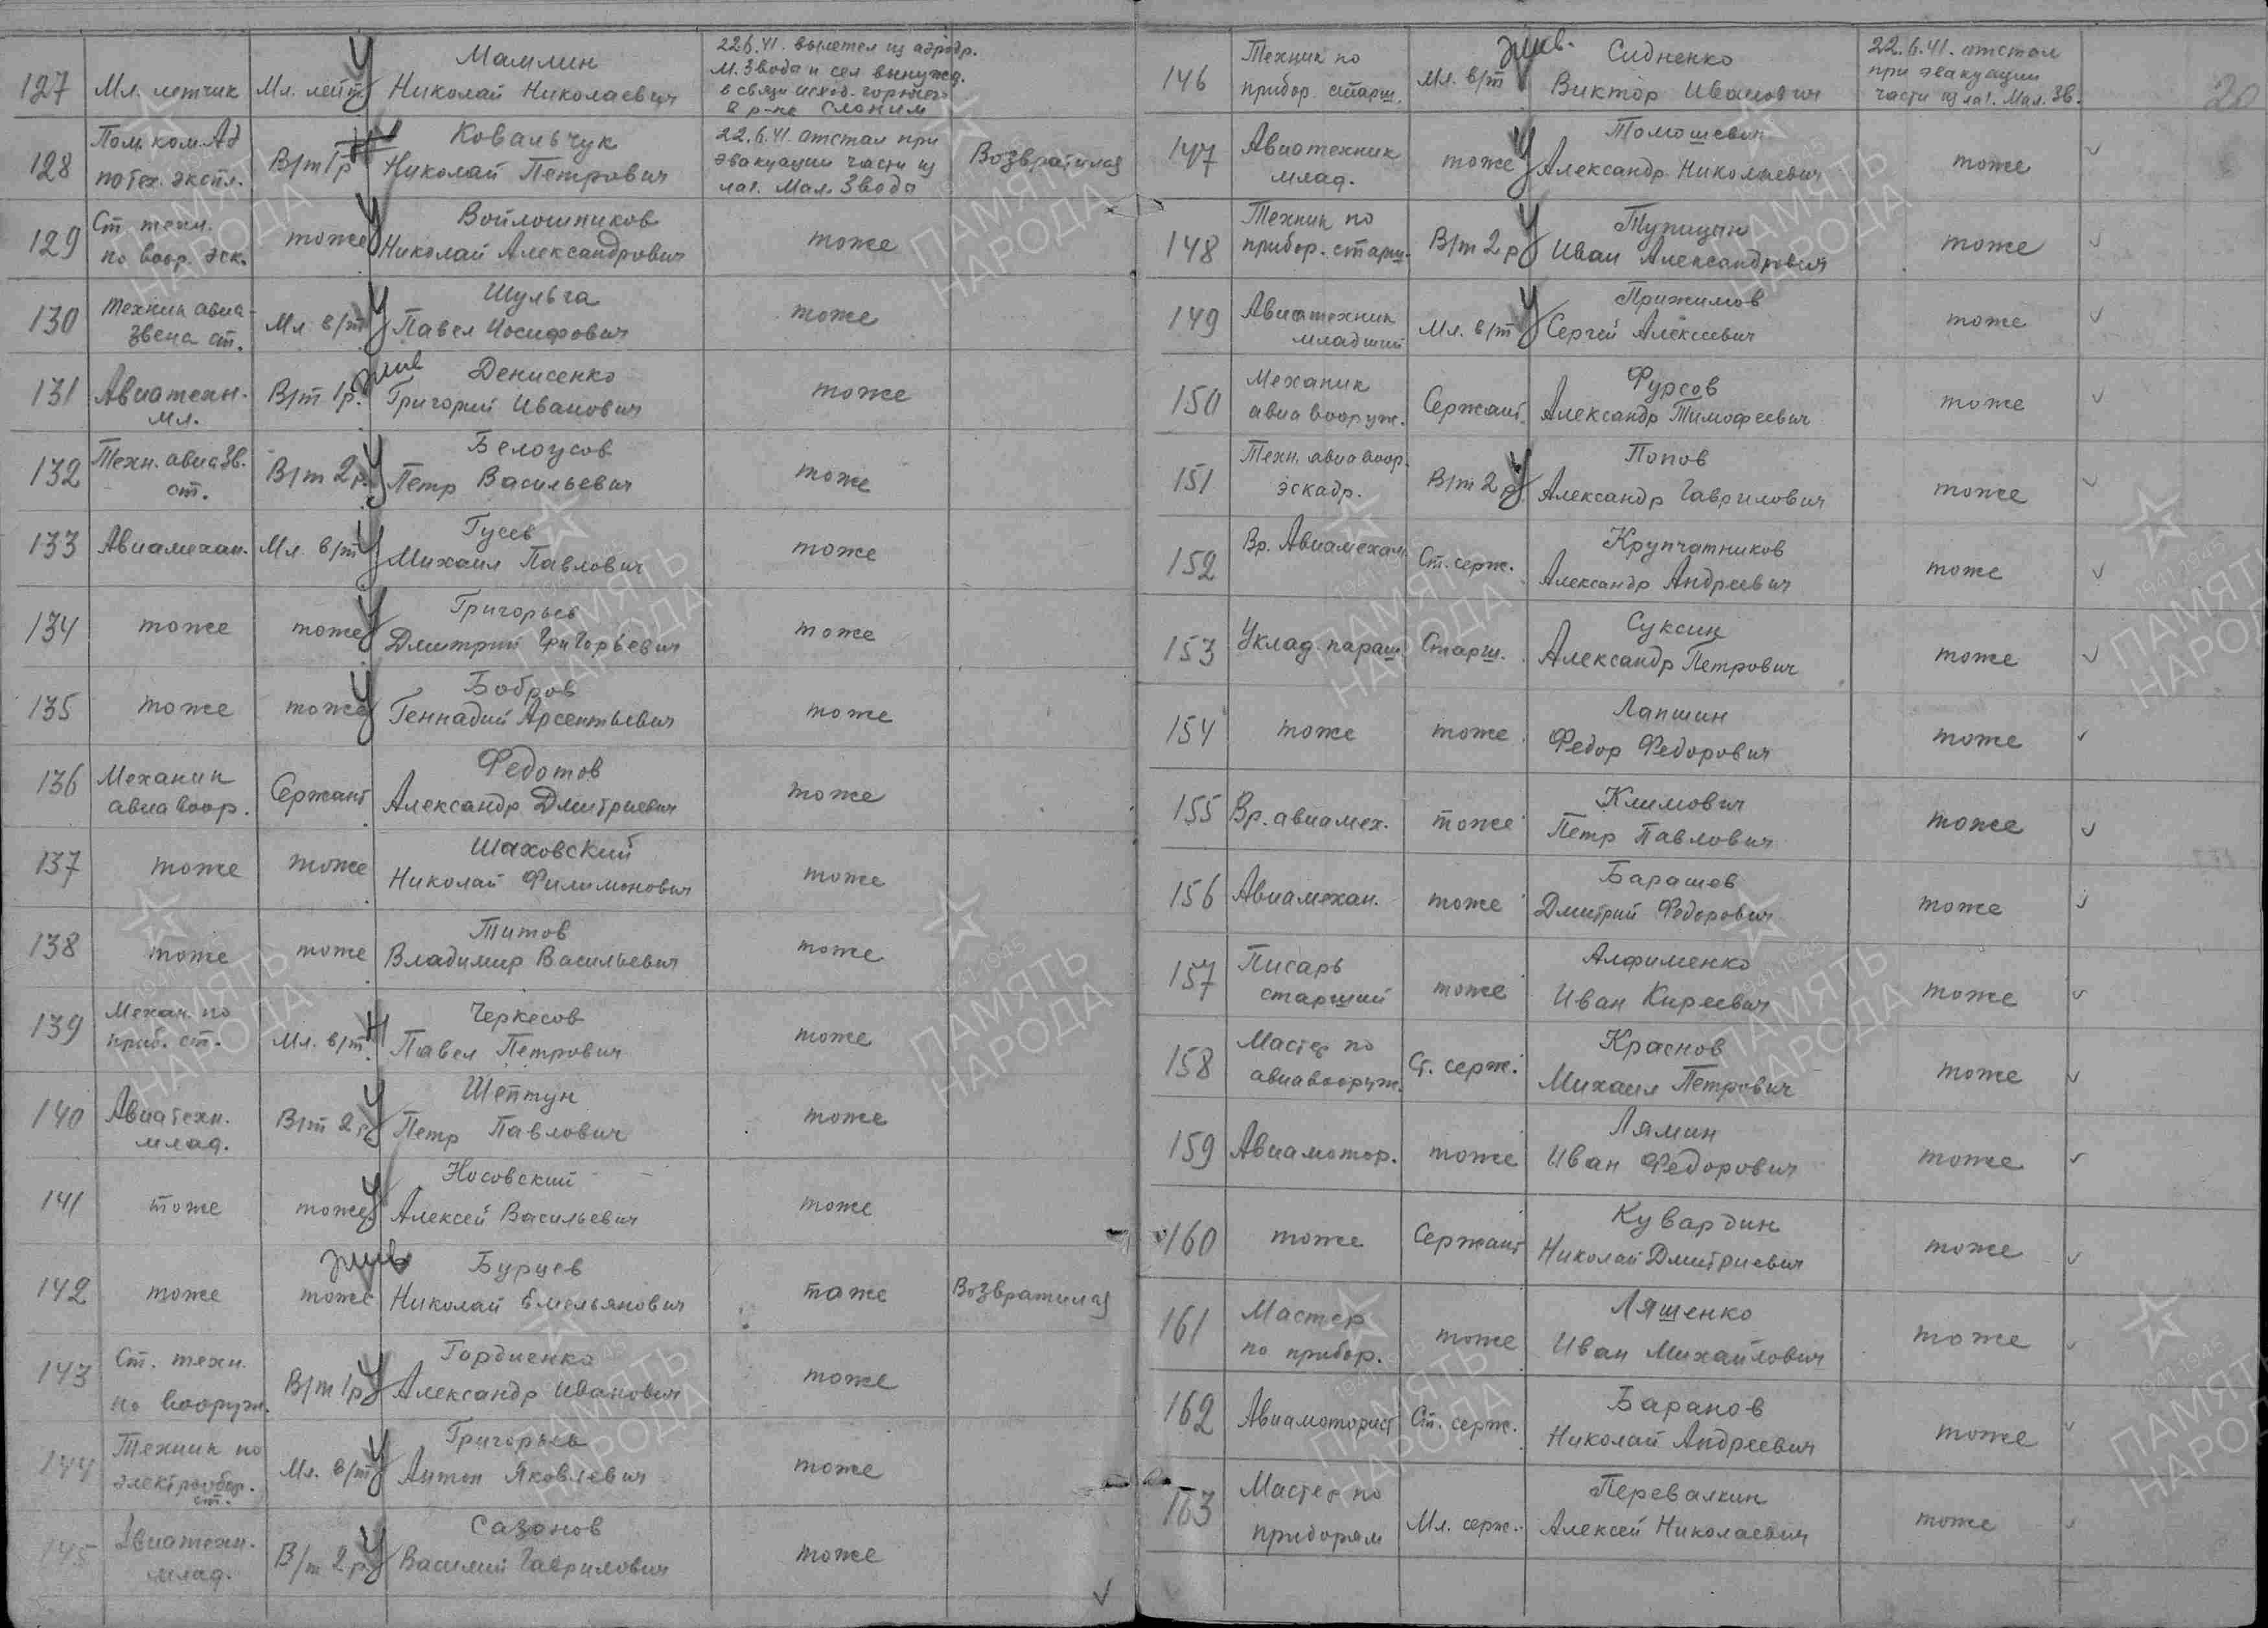 127 Мл. летчик Мл. лейт. У Мамлин
Николай Николаевич
22.6.41. вылетел из аэродр.
М. Звода и сел вынужд.
в связи исход. горючего
в р-не Слоним
128 Пом. ком. АЭ
по тех. экспл. В/т 1р Ковальчук
Николай Петрович
22.6.41. отстал при
эвакуации части из
лаг. Мал. Звода
Возвратился
129 Ст. техн.
по воор. эск. тоже У Войлошников
Николай Александрович тоже
130 Техник авиа-
звена ст. Мл. в/т У Шульга
Павел Иосифович тоже
131 Авиатехн.
мл. В/т 1р. жив Денисенко
Григорий Иванович тоже
132 Техн. авиазв.
ст. В/т 2р. У Белоусов
Петр Васильевич тоже
133 Авиамехан. Мл. в/т У Гусев
Михаил Павлович тоже
134 тоже тоже У Григорьев
Дмитрий Григорьевич тоже
135 тоже тоже У Бобров
Геннадий Арсентьевич тоже
136 Механик
авиавоор. Сержант Федотов
Александр Дмитриевич тоже
137 тоже тоже Шаховский
Николай Филимонович тоже
138 тоже тоже Титов
Владимир Васильевич тоже
139 Механ. по
приб. ст. Мл. в/т. Черкесов
Павел Петрович тоже
140 Авиатехн.
млад. В/т 2р У Шептун
Петр Павлович тоже
141 тоже тоже У Носовский
Алексей Васильевич тоже
142 тоже тоже жив Бурцев
Николай Емельянович таже Возвратился
143 Ст. техн.
по вооруж. В/т 1р У Гордиенко
Александр Иванович тоже
144 Техник по
электрообор.
ст. Мл. в/т У Григорьев
Антон Яковлевич тоже
145 Авиатехн.
млад. В/т 2р. У Сазонов
Василий Гаврилович тоже
20
146 Техник по
прибор. старш. Мл. в/т жив. Сидненко
Виктор Иванович
22.6.41. отстал
при эвакуации
части из лаг. Мал. Зв.
147 Авиатехник
млад. тоже У Томошевич
Александр Николаевич тоже
148 Техник по
прибор. старш. В/т 2р У Тупицын
Иван Александрович тоже
149 Авиатехник
младший Мл. в/т У Прижимов
Сергей Алексеевич тоже
150 Механик
авиавооруж. Сержант Фурсов
Александр Тимофеевич тоже
151 Техн. авиавоор.
эскадр. В/т 2р У Попов
Александр Гаврилович тоже
152 Вр. Авиамехан. Ст. серж. Крупчатников
Александр Андреевич тоже
153 Уклад. параш. Старш. Суксин
Александр Петрович тоже
154 тоже тоже Лапшин
Федор Федорович тоже
155 Вр. авиамех. тоже Климович
Петр Павлович тоже
156 Авиамехан. тоже Барашев
Дмитрий Федорович тоже
157 Писарь
старший тоже Алфименко
Иван Киреевич тоже
158 Мастер по
авиавооруж. Ст. серж. Краснов
Михаил Петрович тоже
159 Авиамотор. тоже Лямин
Иван Федорович тоже
160 тоже Сержант Кувардин
Николай Дмитриевич тоже
161 Мастер
по прибор. тоже Ляшенко
Иван Михайлович тоже
162 Авиамоторист Ст. серж. Баранов
Николай Андреевич тоже
163 Мастер по
приборам Мл. серж. Перевалкин
Алексей Николаевич тоже
1941-1945
ПАМЯТЬ
НАРОДА